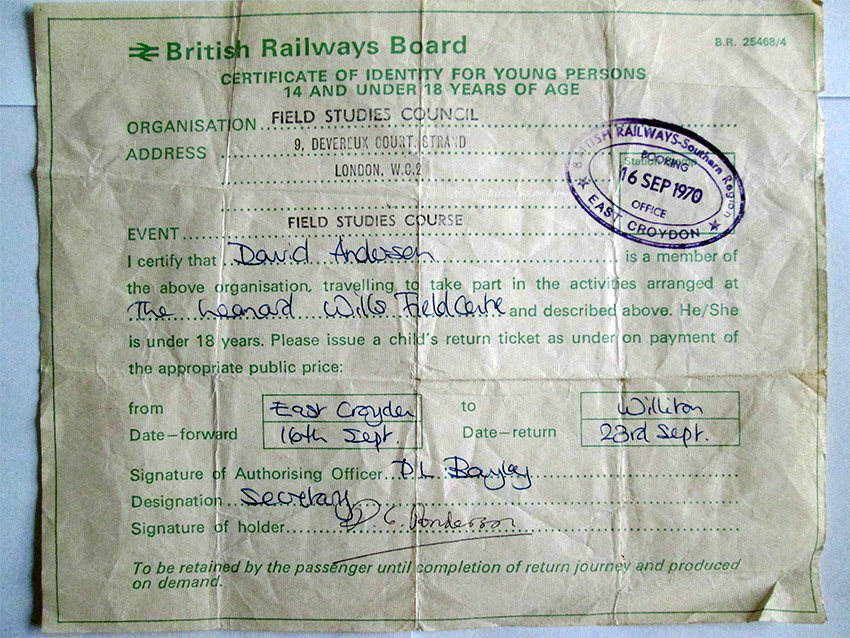 British Railways Board
B.R. 25468/4
CERTIFICATE OF IDENTITY FOR YOUNG PERSONS
14 AND UNDER 18 YEARS OF AGE
ORGANISATION FIELD STUDIES COUNCIL
ADDRESS 9, DEVEREUX COURT, STRAND
LONDON, W.C.2
BRITISH RAILWAYS-Southern Region
Station stamp
BOOKING
16 SEP 1970
OFFICE
EAST CROYDON
EVENT FIELD STUDIES COURSE
I certify that David Anderson is a member of
the above organisation, travelling to take part in the activities arranged at
The Leonard Wills Field Centre and described above. He/She
is under 18 years. Please issue a child's return ticket as under on payment of
the appropriate public price:
from East Croydon to Williton
Date-forward 16th Sept. Date-return 23rd Sept.
Signature of Authorising Officer D L Bayley
Designation Secretary
Signature of holder D G Anderson
To be retained by the passenger until completion of return journey and produced
on demand.